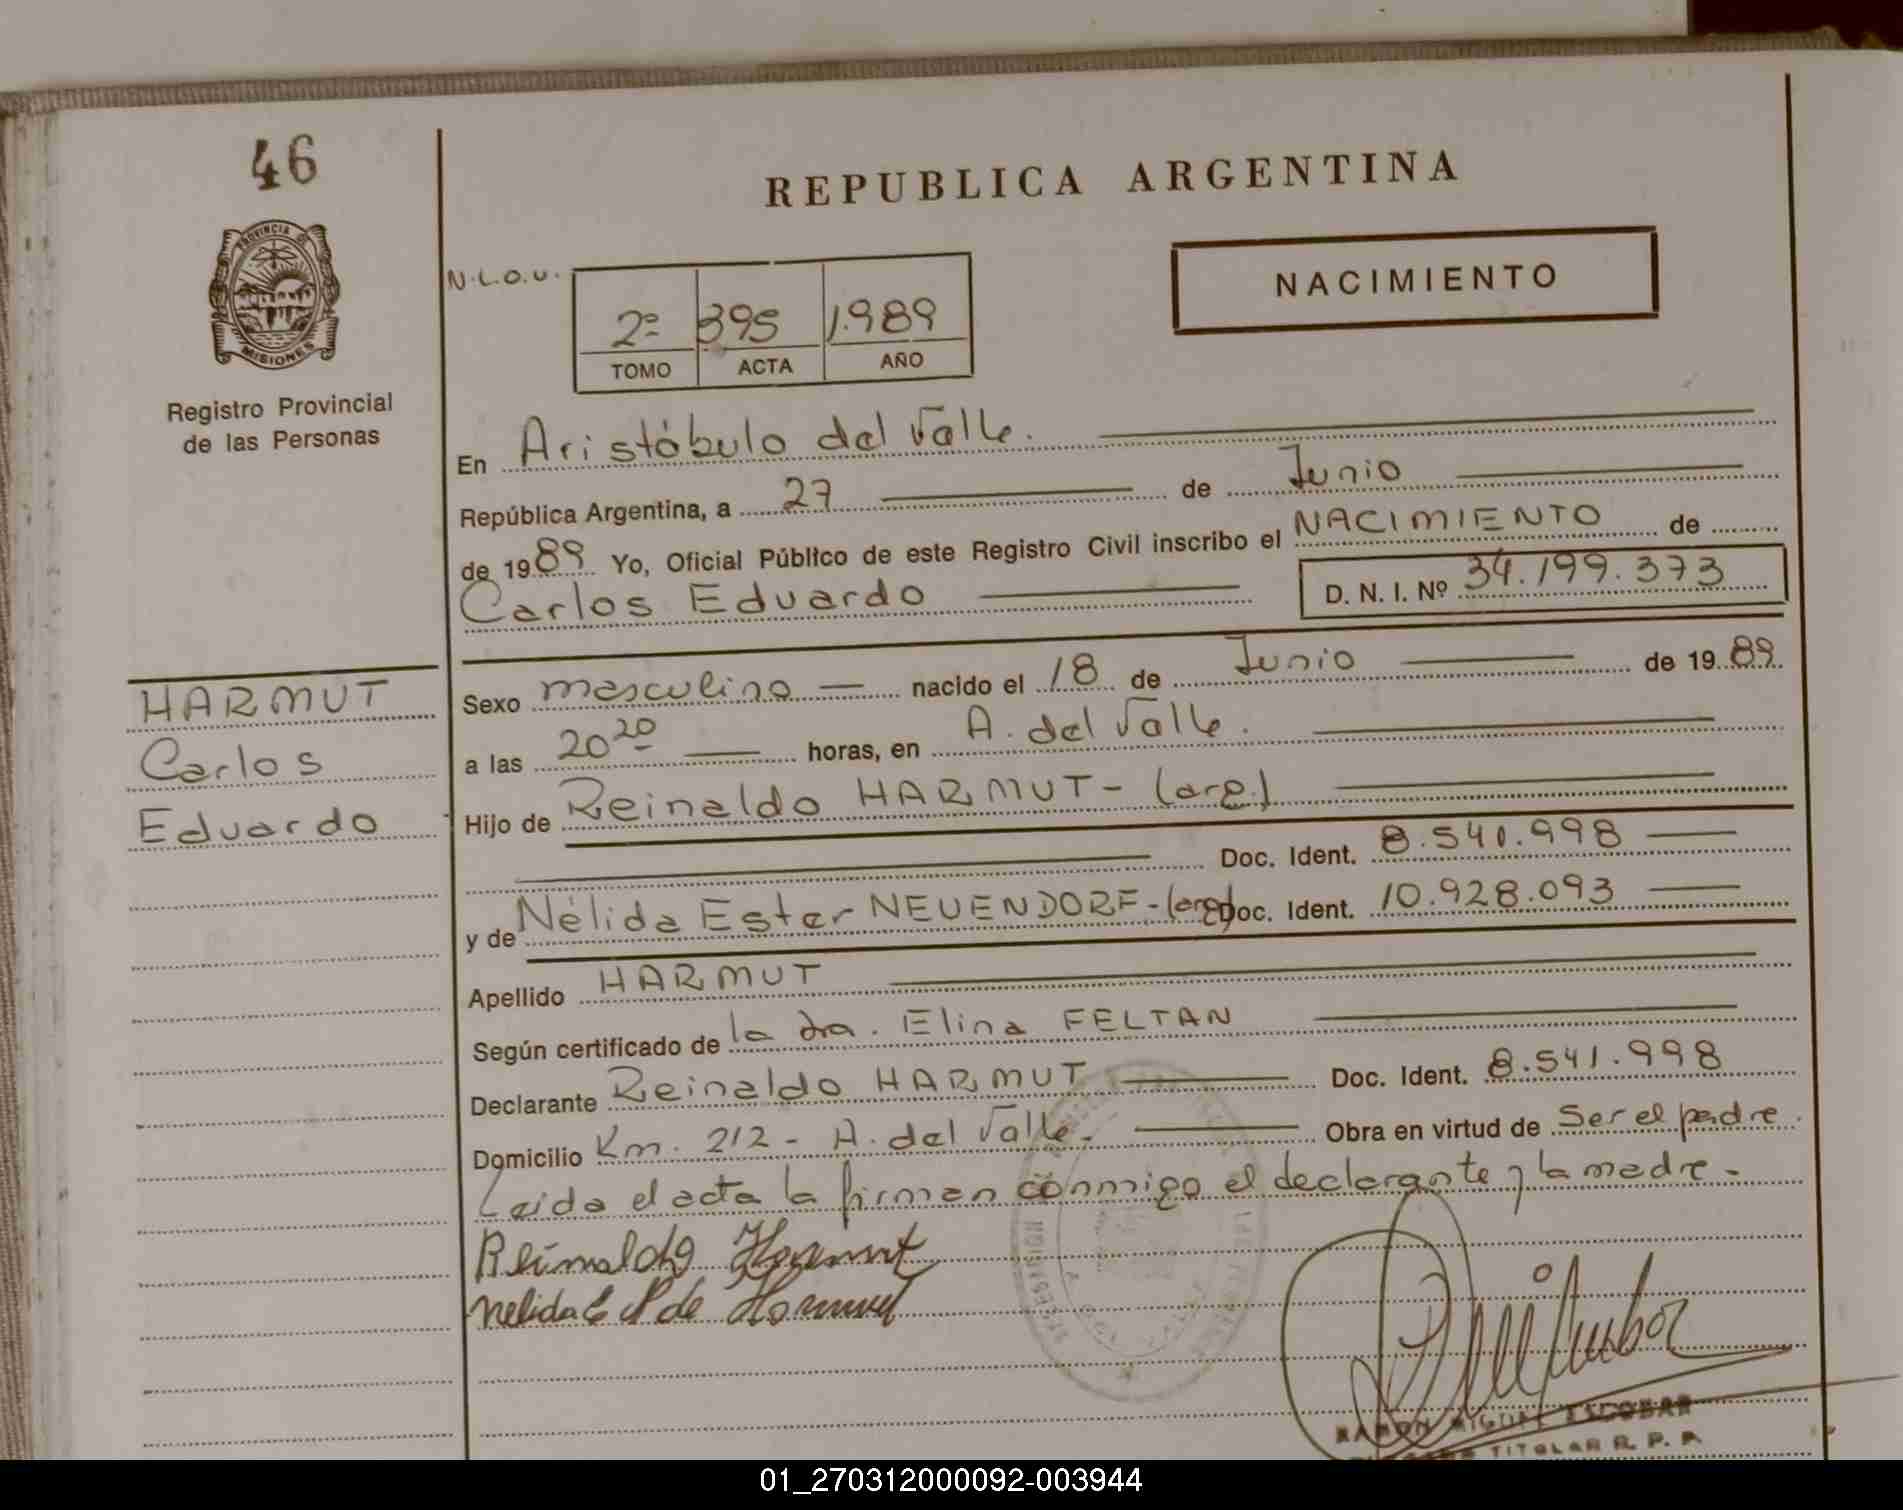 46
PROVINCIA DE
MISIONES
Registro Provincial
de las Personas
HARMUT
Carlos
Eduardo
REPUBLICA ARGENTINA
NACIMIENTO
N.L.O.U.
2º 395 1.989
TOMO ACTA AÑO
En Aristóbulo del Valle.
República Argentina, a 27 de Junio
de 1989 Yo, Oficial Público de este Registro Civil inscribo el NACIMIENTO de
Carlos Eduardo D. N. I. Nº 34.199.373
Sexo masculino nacido el 18 de Junio de 1989
a las 20 20 horas, en A. del Valle.
Hijo de Reinaldo HARMUT - (arg.)
Doc. Ident. 8.541.998
y de Nélida Ester NEUENDORF - (arg) Doc. Ident. 10.928.093
Apellido HARMUT
Según certificado de la dra. Elina FELTAN
Declarante Reinaldo HARMUT Doc. Ident. 8.541.998
Domicilio Km. 212 - A. del Valle. Obra en virtud de Ser el padre.
Leida el acta la firman conmigo el declarante y la madre -
Reinaldo Harmut
Nelida E N de Harmut
RAMON MIGUEL ESCOBAR
TITULAR R. P. P.
01_270312000092-003944